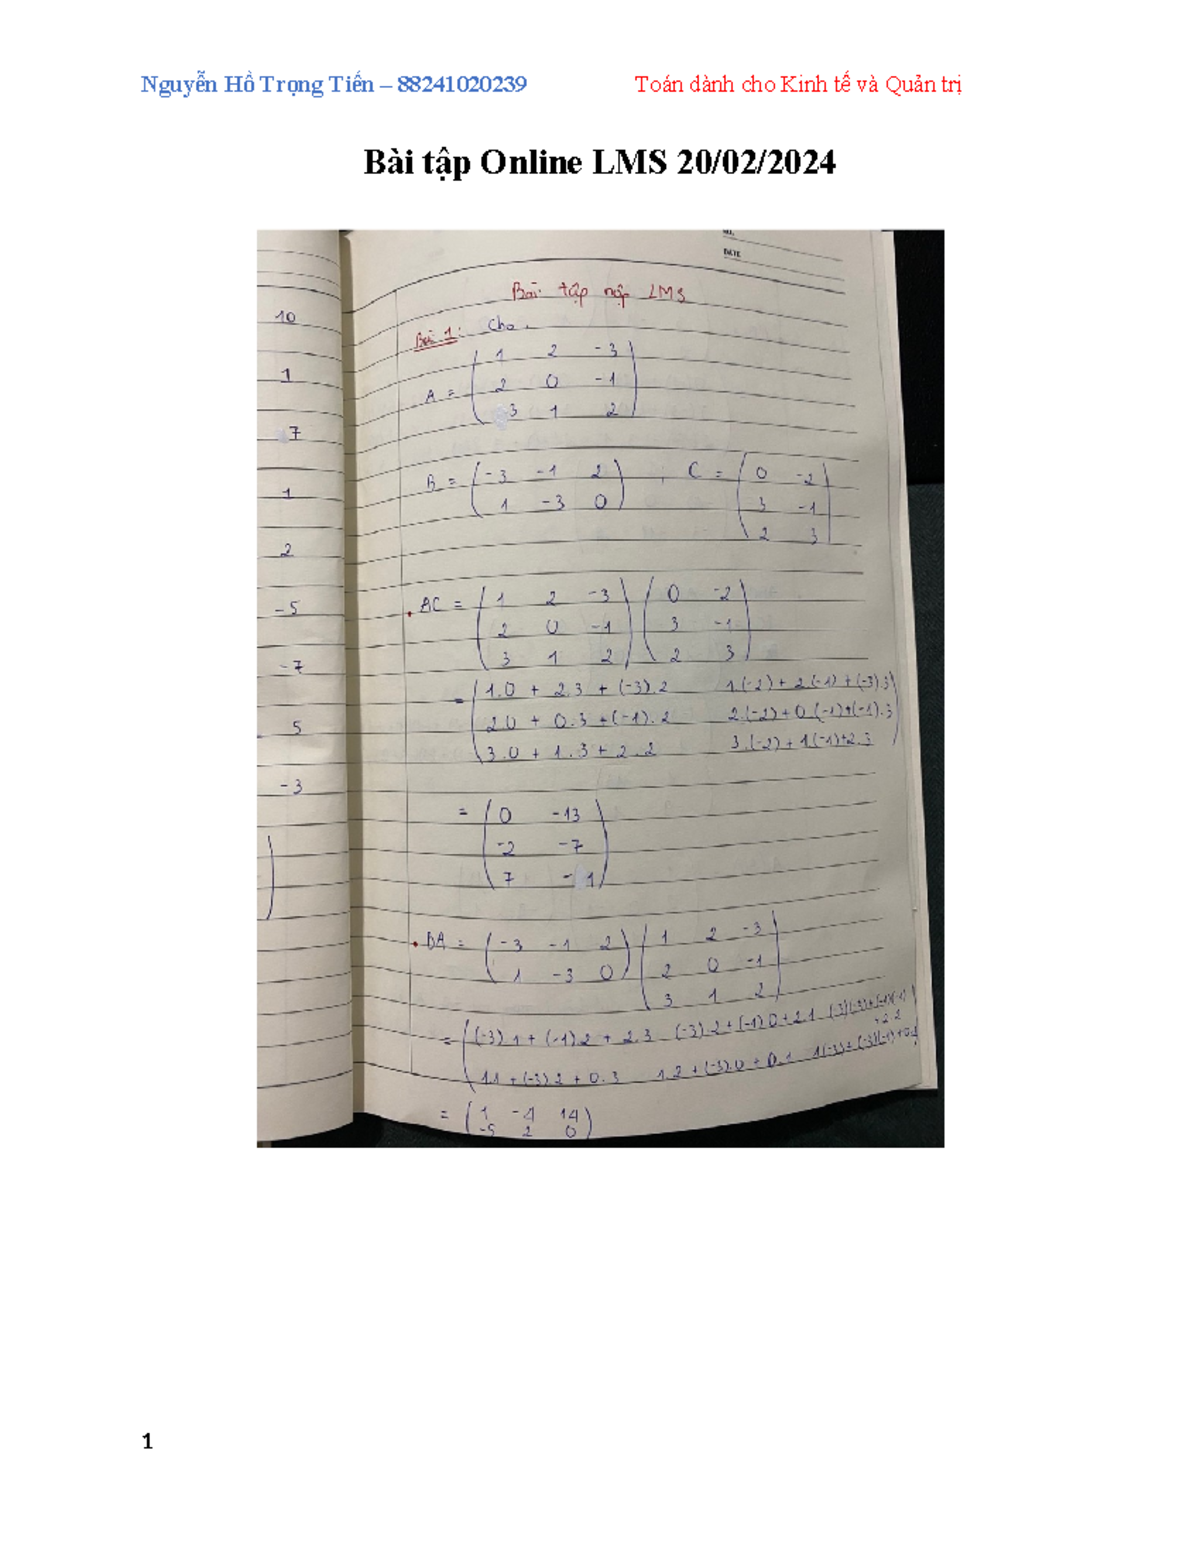 Nguyễn Hồ Trọng Tiến – 88241020239 Toán dành cho Kinh tế và Quản trị
Bài tập Online LMS 20/02/2024
DATE
Bài tập nộp LMS
Bài 1: Cho.
A = ( 1 2 -3
2 0 -1
3 1 2 )
B = ( -3 -1 2
1 -3 0 ) , C = ( 0 -2
3 -1
2 3 )
• AC = ( 1 2 -3 ) ( 0 -2 )
2 0 -1 3 -1
3 1 2 2 3
= ( 1.0 + 2.3 + (-3).2 1.(-2) + 2.(-1) + (-3).3 )
2.0 + 0.3 + (-1).2 2.(-2) + 0.(-1) + (-1).3
3.0 + 1.3 + 2.2 3.(-2) + 1(-1)+2.3
= ( 0 -13
-2 -7
7 -1 )
• BA = ( -3 -1 2 ) ( 1 2 -3 )
1 -3 0 2 0 -1
3 1 2
= ( (-3).1 + (-1)2 + 2.3 (-3).2 + (-1)0 + 2.1 (-3)(-3) + (-1)(-1)
+ 2.2
1.1 + (-3)2 + 0.3 1.2 + (-3).0 + 0.1 1(-3) + (-3)(-1) + 0.2
= ( 1 -4 14 )
-5 2 0
10
1
7
1
2
-5
-7
5
-3
1